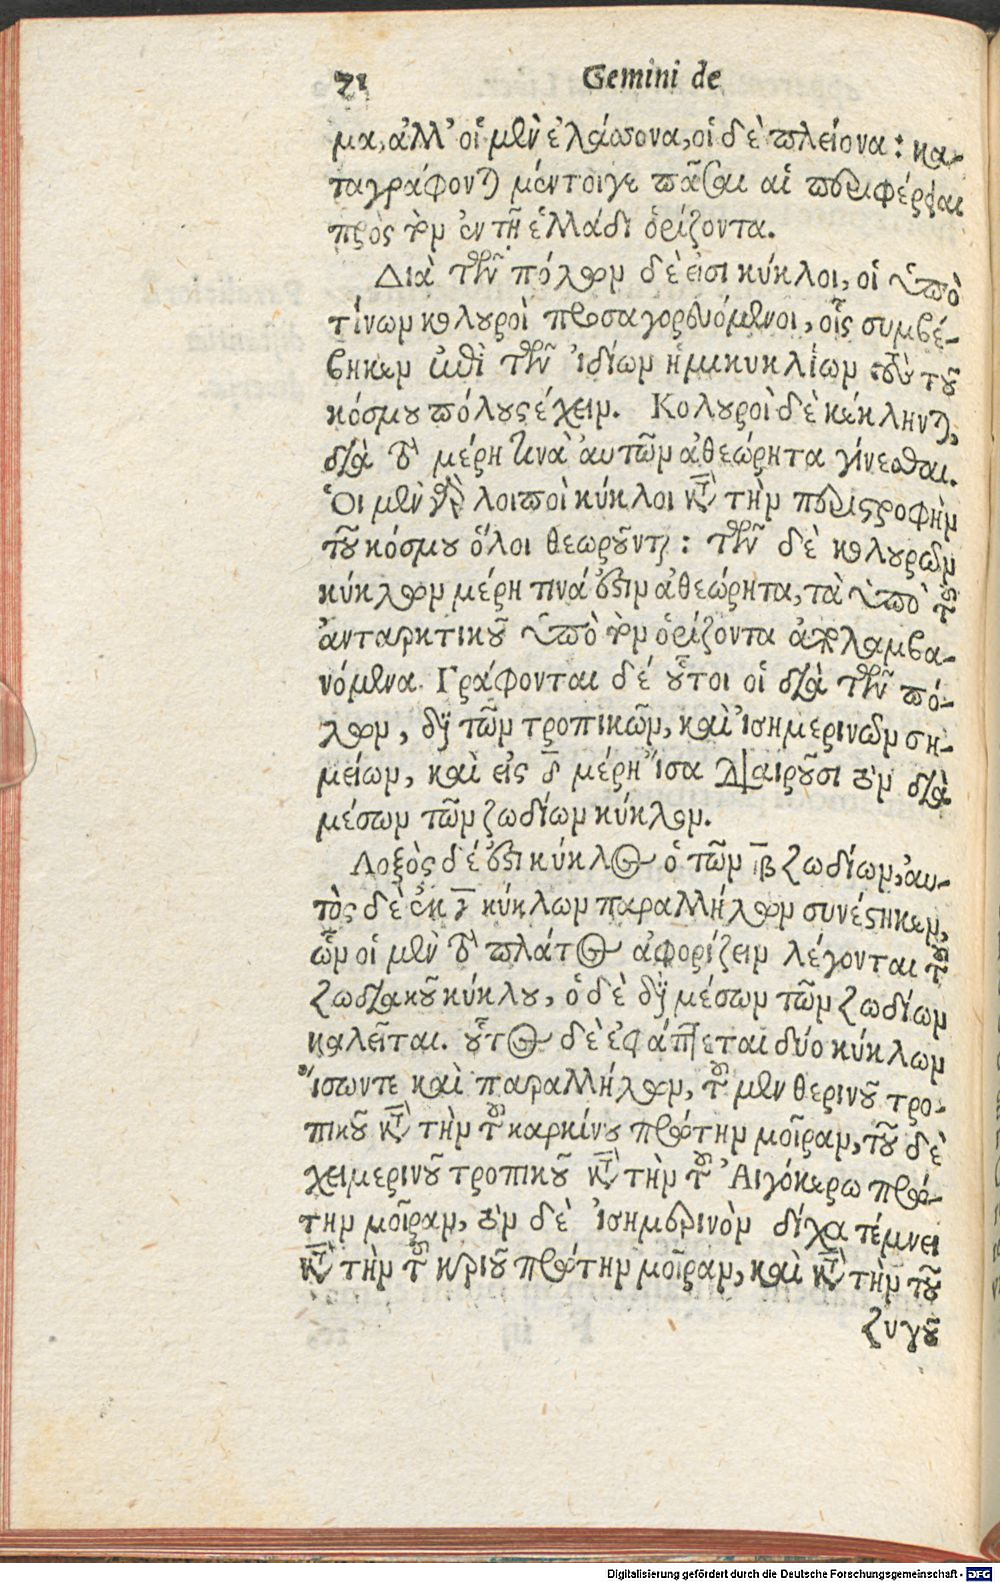 71 Gemini de
μα, ἀλλ' οἱ μὲν ἐλάσσονα, οἱ δὲ πλείονα: κα-
ταγράφονται μέντοιγε πᾶσαι αἱ περιφέρειαι
πρὸς τὸν ἐν τῇ ἑλλάδι ὁρίζοντα.
Διὰ τῶν πόλων δὲ εἰσι κύκλοι, οἱ ὑπὸ
τίνων κολουροὶ προσαγορευόμενοι, οἷς συμβέ-
βηκεν ἐπὶ τῶν ἰδίων ἡμικυκλίων τοὺς τοῦ
κόσμου πόλους έχειν. Κολουροὶ δὲ κέκληνται,
διὰ τὸ μέρη τινὰ αὐτῶν ἀθεώρητα γίνεσθαι.
Ὁι μὲν γὰρ λοιποὶ κύκλοι κατὰ τὴν περιστροφὴν
τοῦ κόσμου ὅλοι θεωροῦνται: τῶν δὲ κολουρων
κύκλων μέρη τινά ἐστιν ἀθεώρητα, τὰ ὑπὸ τοῦ
ἀνταρκτικοῦ ὑπὸ τὸν ὁρίζοντα ἀπολαμβα-
νόμενα. Γράφονται δέ οὗτοι οἱ διὰ τῶν πό-
λων, διὰ τῶν τροπικῶν, καὶ ἰσημερινῶν ση-
μείων, καὶ εἰς δ̄ μέρη ἴσα διαιροῦσι τὸν διὰ
μέσων τῶν ζωδίων κύκλον.
Λοξὸς δέ ἐστι κύκλος ὁ τῶν ιβ ζωδίων, αὐ-
τὸς δὲ ἐκ γ̄ κύκλων παραλλήλων συνέστηκεν,
ὧν οἱ μὲν τὸ πλάτος ἀφορίζειν λέγονται τοῦ
ζωδιακοῦ κύκλου, ὁ δὲ διὰ μέσων τῶν ζωδίων
καλεῖται. οὗτος δὲ ἐφάπτεται δύο κύκλων
ἴσωντε καὶ παραλλήλων, τοῦ μὲν θερινοῦ τρο-
πικοῦ κατὰ τὴν τοῦ καρκίνου πρώτην μοῖραν, τοῦ δὲ
χειμερινοῦ τροπικοῦ κατὰ τὴν τοῦ Αἰγόκερω πρώ-
την μοῖραν, τὸν δὲ ἰσημερινὸν δίχα τέμνει
κατὰ τὴν τοῦ κριοῦ πρώτην μοῖραν, καὶ κατὰ τὴν τοῦ
ζυγοῦ
Digitalisierung gefördert durch die Deutsche Forschungsgemeinschaft - DFG